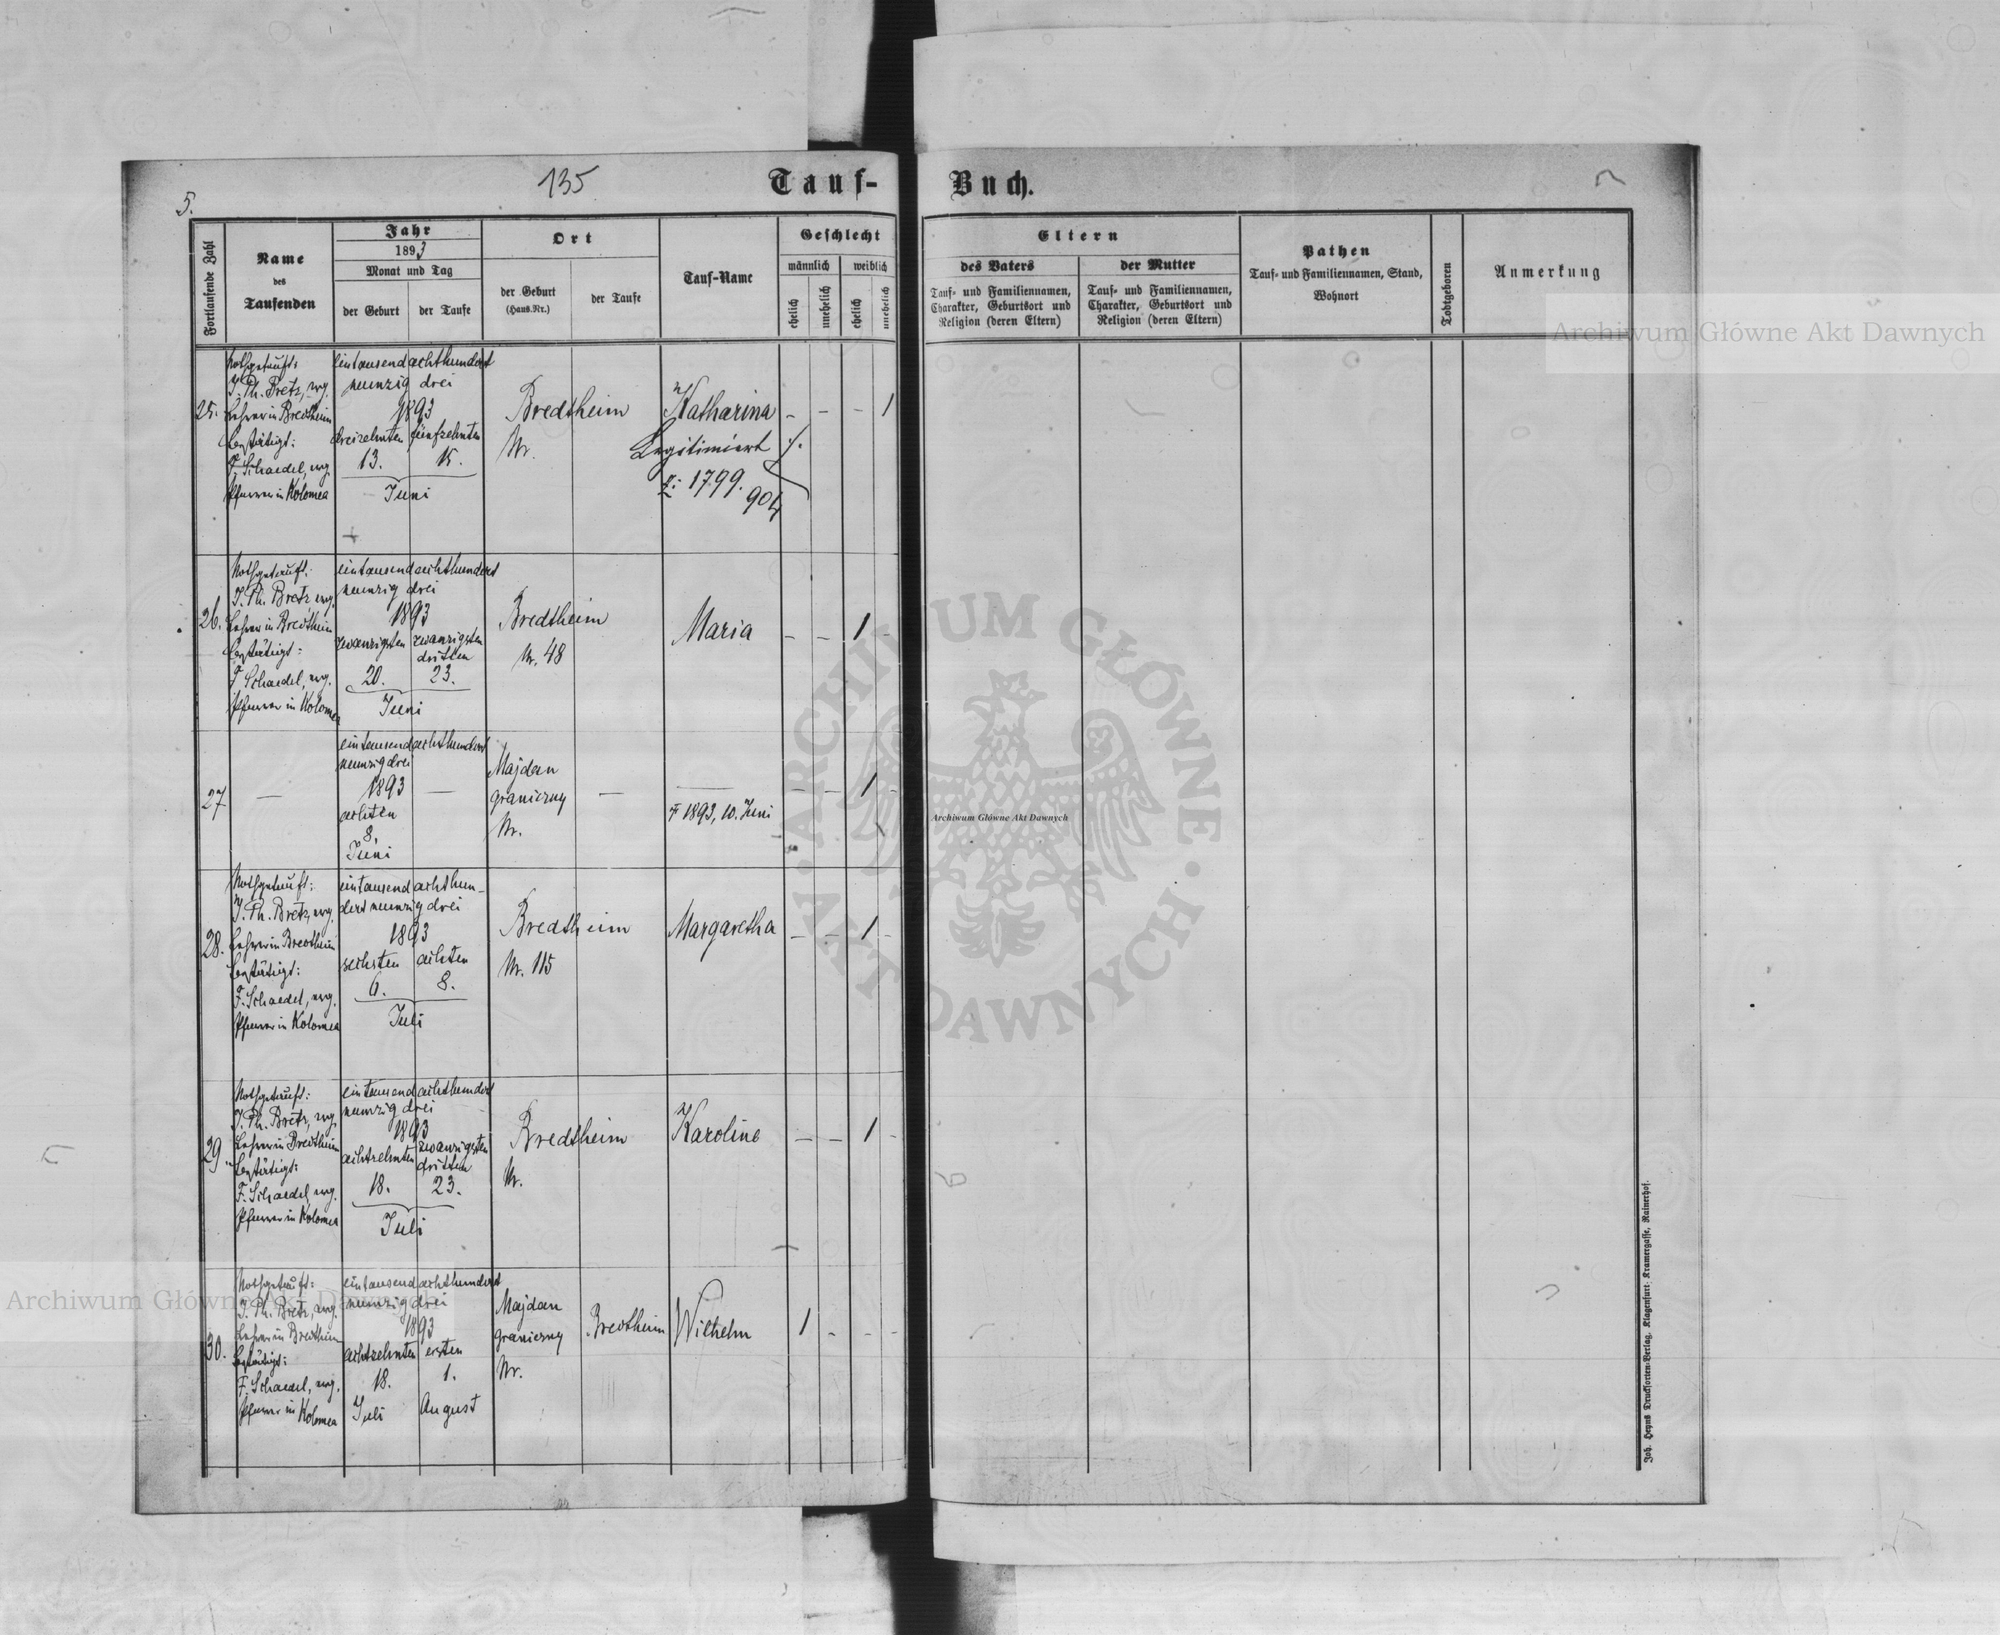 5.
135
Tauf-
Buch.
Fortlaufende Zahl
Name
des
Taufenden
Jahr
1893
Monat und Tag
der Geburt
der Taufe
Ort
der Geburt
(Haus-Nr.)
der Taufe
Tauf-Name
Geschlecht
männlich
weiblich
ehelich
unehelich
ehelich
unehelich
Eltern
des Vaters
Tauf- und Familiennamen,
Charakter, Geburtsort und
Religion (deren Eltern)
der Mutter
Tauf- und Familiennamen,
Charakter, Geburtsort und
Religion (deren Eltern)
Pathen
Tauf- und Familiennamen, Stand,
Wohnort
Todtgeboren
Anmerkung
25.
Nothgetauft:
J. Ph. Bretz, mg.
Lehrer in Bredtheim
bestätigt:
F. Schaedel, mg.
Pfarrer in Kolomea
eintausendachthundert
neunzig drei
1893
dreizehnten fünfzehnten
13. 15.
Juni
Bredtheim
Nr.
Katharina
Legitimiert
z: 1799.
904
- - - 1
26.
Nothgetauft:
J. Ph. Bretz mg.
Lehrer in Bredtheim
bestätigt:
F Schaedel, mg.
Pfarrer in Kolomea
eintausendachthundert
neunzig drei
1893
zwanzigsten zwanzigsten
dritten
20. 23.
Juni
Bredtheim
Nr. 48
Maria
- - 1 -
27
—
eintausendachthundert
neunzig drei
1893 —
achten
8.
Juni
Majdan
graniczny —
Nr.
—
† 1893, 10. Juni
- 1 -
28.
Nothgetauft:
J. Ph. Bretz, mg.
Lehrer in Bredtheim
bestätigt:
F. Schaedel, mg.
Pfarrer in Kolomea
eintausend achthun-
dert neunzig drei
1893
sechsten achten
6. 8.
Juli
Bredtheim
Nr. 115
Margaretha
- - 1 -
29.
Nothgetauft:
J. Ph. Bretz, mg.
Lehrer in Bredtheim
bestätigt:
F. Schaedel, mg.
Pfarrer in Kolomea
eintausendachthundert
neunzig drei
1893
achtzehnten zwanzigsten
dritten
18. 23.
Juli
Bredtheim
Nr.
Karoline
- - 1 -
30.
Nothgetauft:
J. Ph. Bretz, mg.
Lehrer in Bredtheim
bestätigt:
F. Schaedel, mg.
Pfarrer in Kolomea
eintausendachthundert
neunzig drei
1893
achtzehnten ersten
18. 1.
Juli August
Majdan
graniczny
Nr.
Bredtheim
Wilhelm
1 - - -
Joh. Heyns Drucksorten-Verlag, Klagenfurt, Kramergasse, Rainerhof.
Archiwum Główne Akt Dawnych
Archiwum Główne Akt Dawnych
Archiwum Główne Akt Dawnych
ARCHIWUM GŁÓWNE AKT DAWNYCH